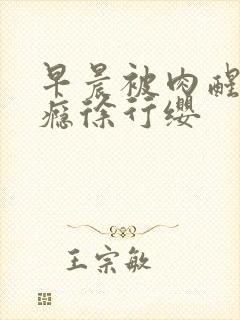 早晨被肉醒
瘾徐行缨
王宗敏